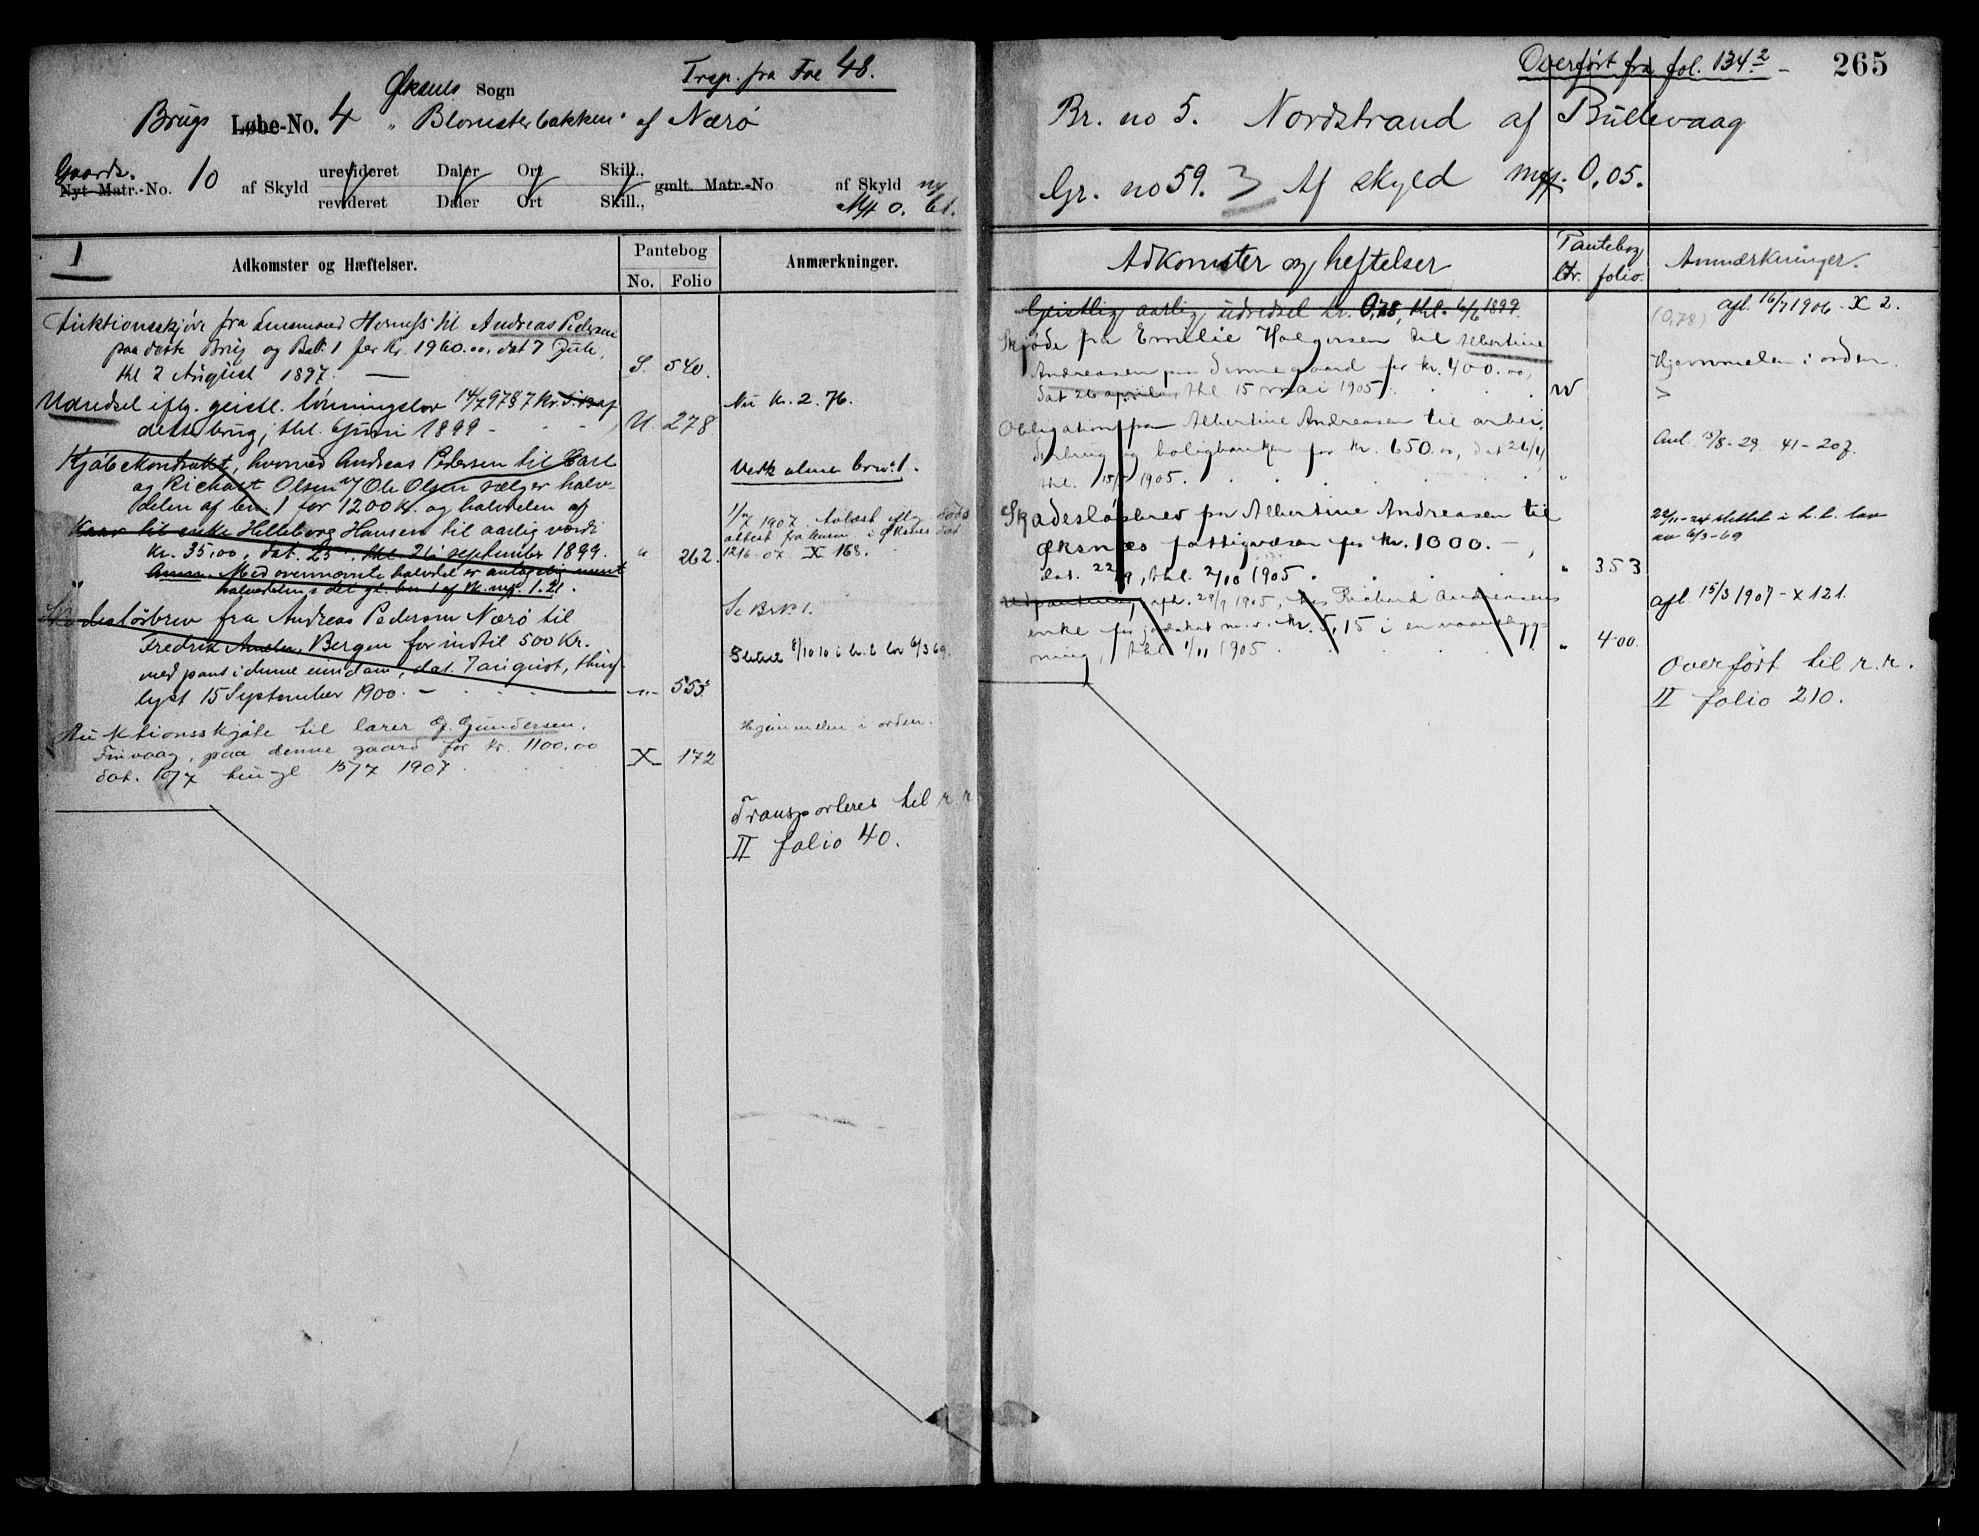 Trsp. fra Foe 48.
Øksnes Sogn
Brugs Løbe-No. 4 "Blomsterbakken" af Nærø
Gaards.
Nyt Matr.-No. 10 af Skyld urevideret Daler Ort Skill., gmlt. Matr.-No af Skyld ny
revideret Daler Ort Skill., Mk 0.61.
1
Adkomster og Hæftelser.
Pantebog
No. Folio
Anmærkninger.
Auktionsskjøde fra Lensmand til Andreas Pedersen
paa dette Brug og 1 for Kr. 1960.00, dat 7 Juli,
thl 2 August 1897. — S. 540.
Udredsel iflg. geistl. lønningslov 14/7 97 87 Kr. af
dette brug, thl. 6 Juni 1899 - U 278
Nu Kr. 2.76.
Kjøbekontrakt, hvorved Andreas Pedersen til Carl
og Richart Olsen Ole Olsen sælger halv-
delen af bn. 1 for 1200 Kr. og halvdelen af
Vedk alene brno 1.
Kaar til enke Helleborg Hansen til aarlig værdi
kr. 35.00, dat. 25, thl. 26 september 1899. " 262.
1/7 1907. Avlæst iflg. døds
attest fra lensm. i Øksnes dat
12/6-07 X 168.
Anm. Med overnævnte halvdel er antagelig ment
halvdelen i det gl. bn 1 af Kr. mk. 1.21.
Skadesløsbrev fra Andreas Pedersen Nærø til
Fredrik Amelin, Bergen for indtil 500 Kr.
med pant i denne eiendom, dat. 7 august, thing-
lyst 15 September 1900. - -"- 555
Se Br No 1.
Slettet 8/10 10 i h. t. lov 6/3 69.
Auktionsskjøte til lærer G. Gundersen.
Finvaag, paa denne gaard for kr. 1100.00
dat. 10/7 tingl. 15/7 1907 X 172
Hjemmelen i orden.
Transporteres til r.r
II folio 40.
Overført fra fol. 134.2 -
265
Br. no 5. Nordstrand af Bullevaag
Gr. no 59. 3 Af skyld mk. 0,05.
Adkomster og heftelser
Pantebog
Ltr. folio.
Anmærkninger.
Geistlig aarlig udredsel kr. 0,78, thl. 6/6 1899.
(0,78) afl. 16/7 1906 - X 2.
Skjøde fra Emelie Holgersen til Albertine
Andreassen paa denne gaard for kr. 400.00,
dat 26 april, thl 15 mai 1905. W
Hjemmelen i orden
Obligation fra Albertine Andreasen til arbei-
derbrug og boligbanken for kr. 650.00, dat 26/4,
thl. 15/5 1905. "
Avl. 13/8-29 41-207.
Skadesløsbrev fra Albertine Andreasen til
Øksnes fattigvæsen for Kr. 1000.-,
dat. 22/9, thl. 2/10 1905 " 353
22/11-24 slettet i h.t. lov
av 6/3-69
Udpantning, afh. 29/9 1905, hos Richard Andreasens
enke for jordskat m.v. kr. 5,15 i en vaaningsbyg-
ning, thl 1/11 1905 " 400.
afl. 15/3 1907 - X 121.
Overført til r.r.
II folio 210.